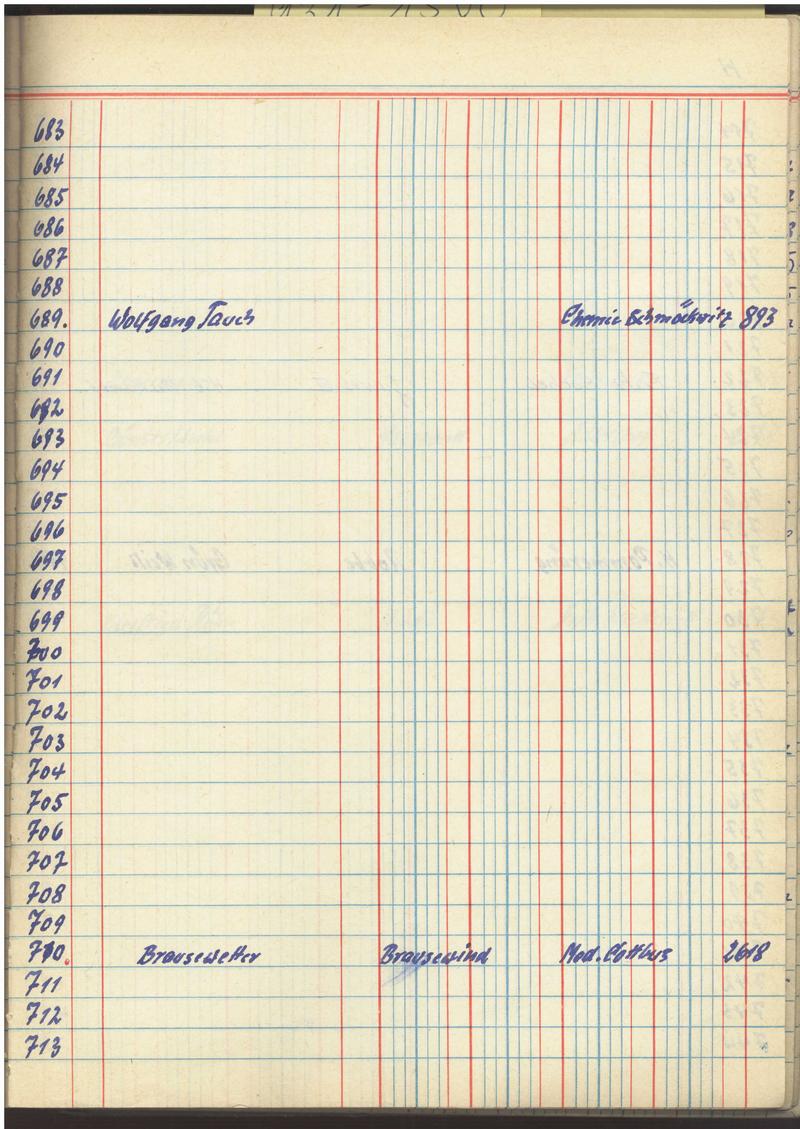 683
684
685
686
687
688
689. Wolfgang Tauch Chemie Schmöckwitz 893
690
691
692
693
694
695
696
697
698
699
700
701
702
703
704
705
706
707
708
709
710. Brausewetter Brausewind Med. Cottbus 2618
711
712
713